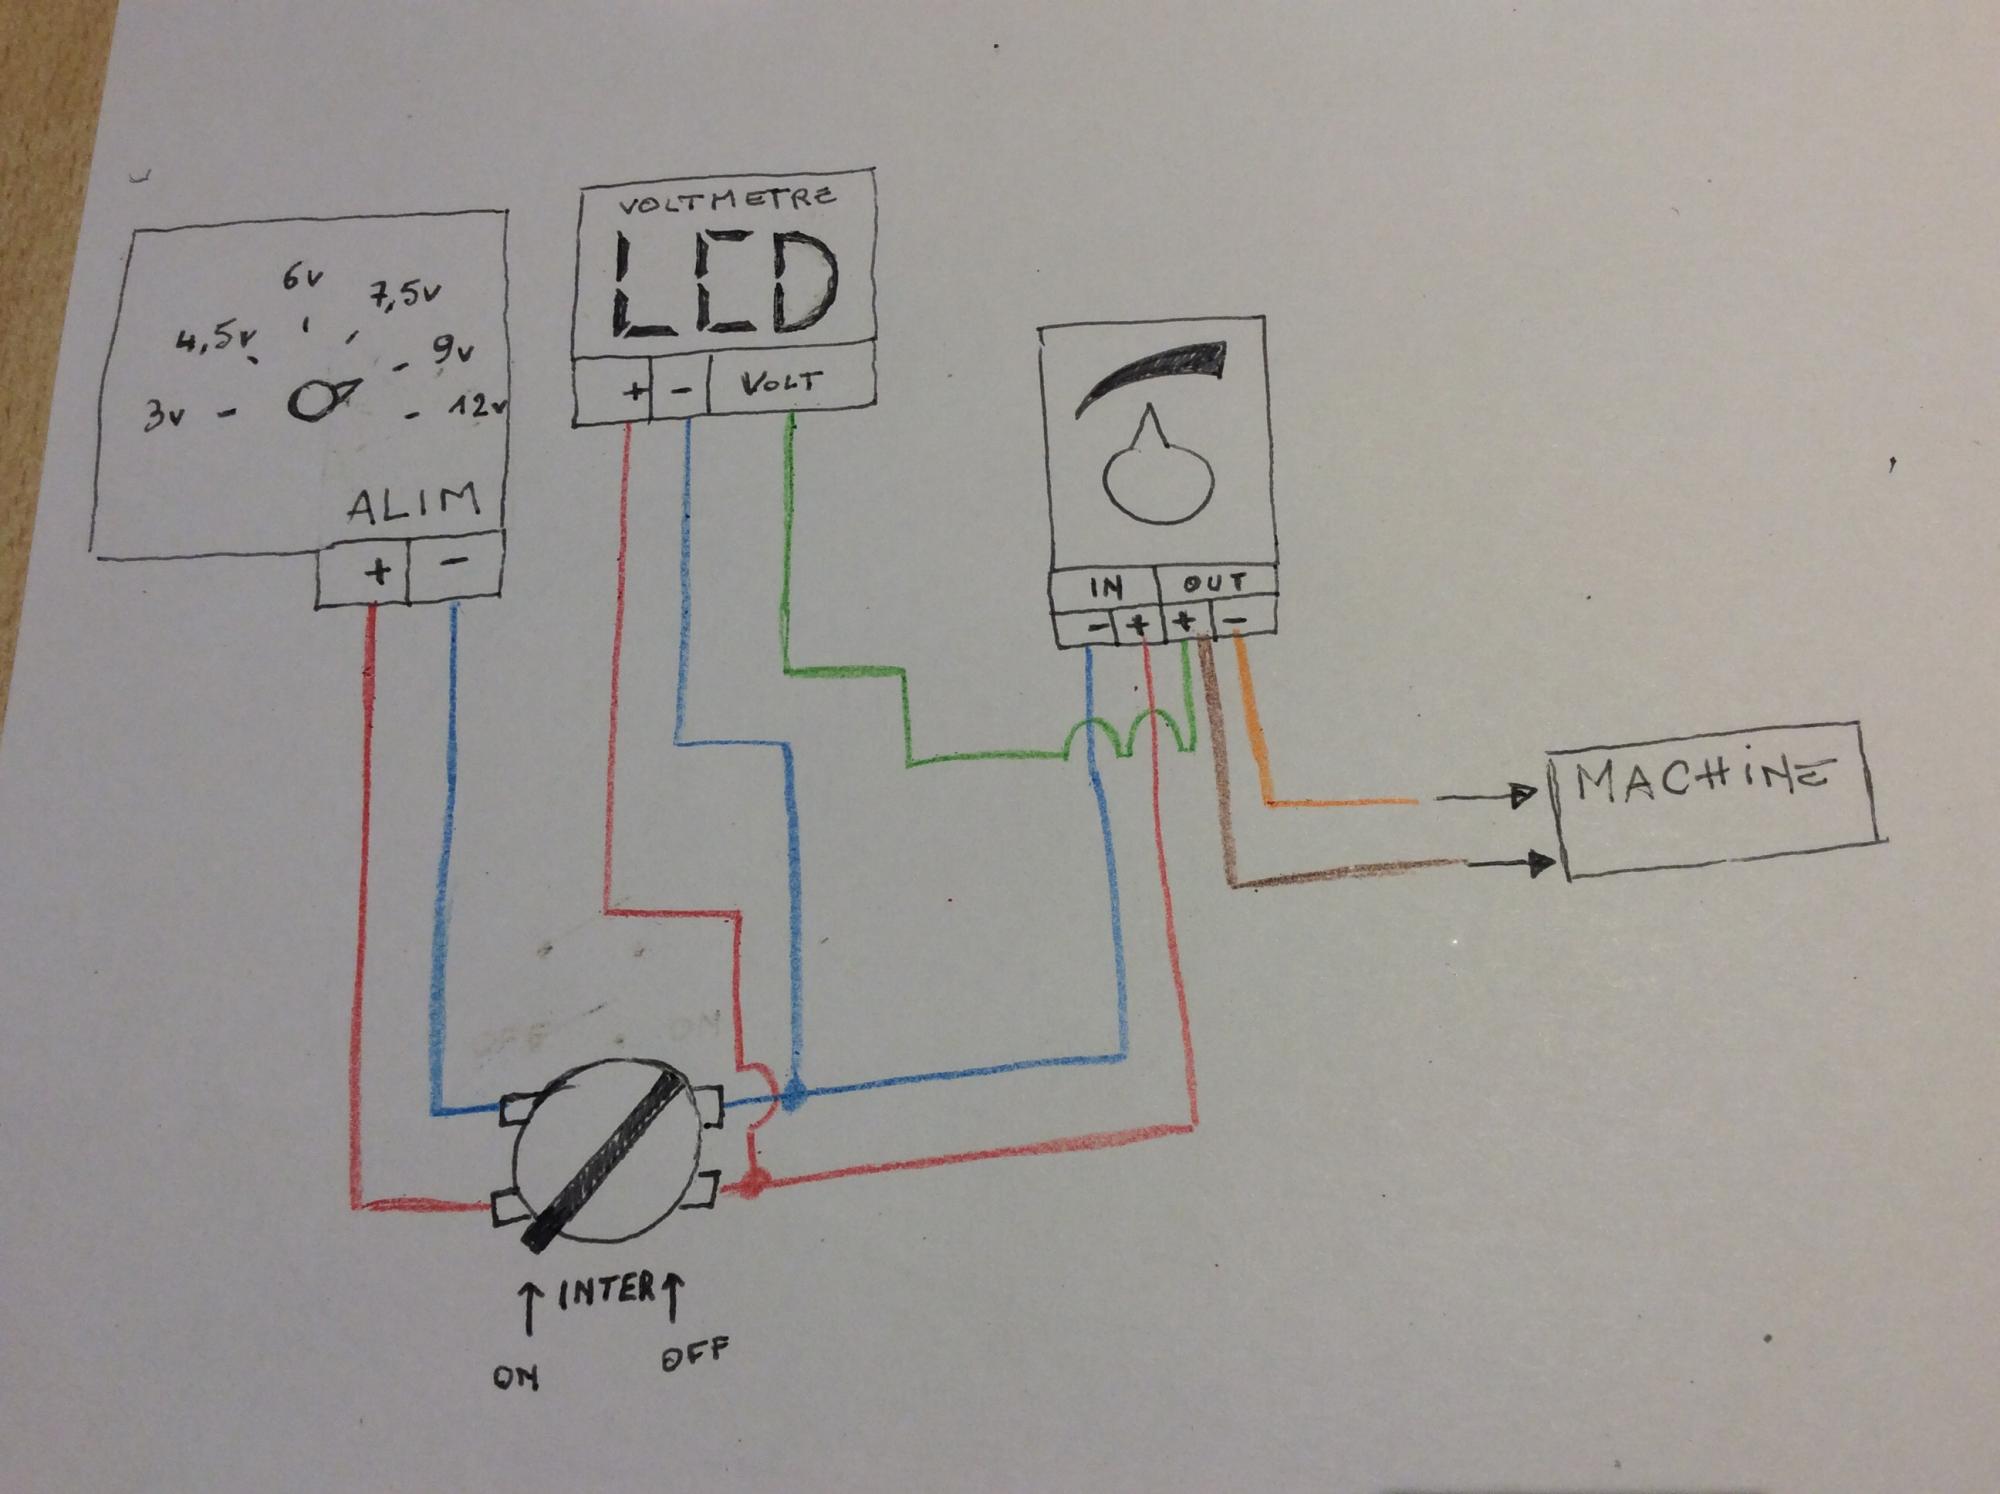 6v
7,5v
4,5v
9v
3v
12v
ALIM
+ -
VOLTMETRE
LCD
+ - VOLT
IN OUT
- + + -
MACHINE
INTER
ON
OFF